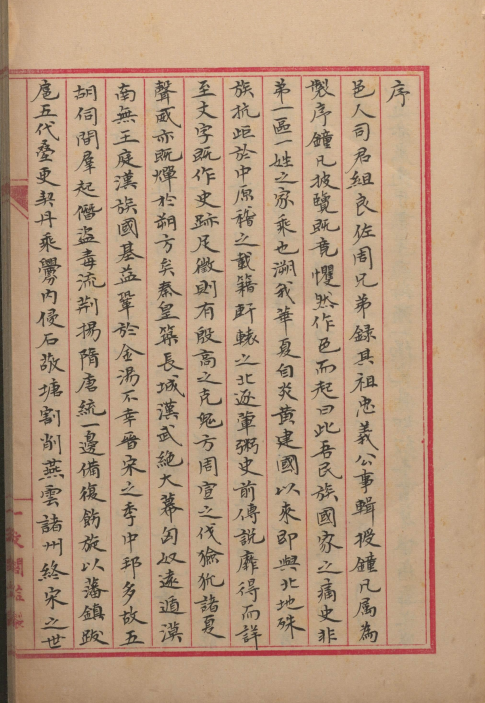 序
邑人司君組良佐周兄弟録其祖忠義公事輯授鐘凡属為
製序鐘凡披覽既竟懼然作色而起曰此吾民族國家之痛史非
第一區一姓之家乘也溯我華夏自炎黄建國以來即與北地殊
族抗距於中原籍之載籍軒轅之北逐葷粥史前傳說靡得而詳
至文字既作史跡足徵則有殷高之克鬼方周宣之伐獫狁諸夏
聲威亦既燀於朔方矣秦皇築長城漢武絶大幕匈奴遠遁漠
南無王庭漢族國基益鞏於金湯不幸晉宋之季中邦多故五
胡伺間羣起僭盜毒流荆揚隋唐統一邊備復飭旋以藩鎮跋
扈五代疊更契丹乘釁内侵石敬塘割削燕雲諸州終宋之世